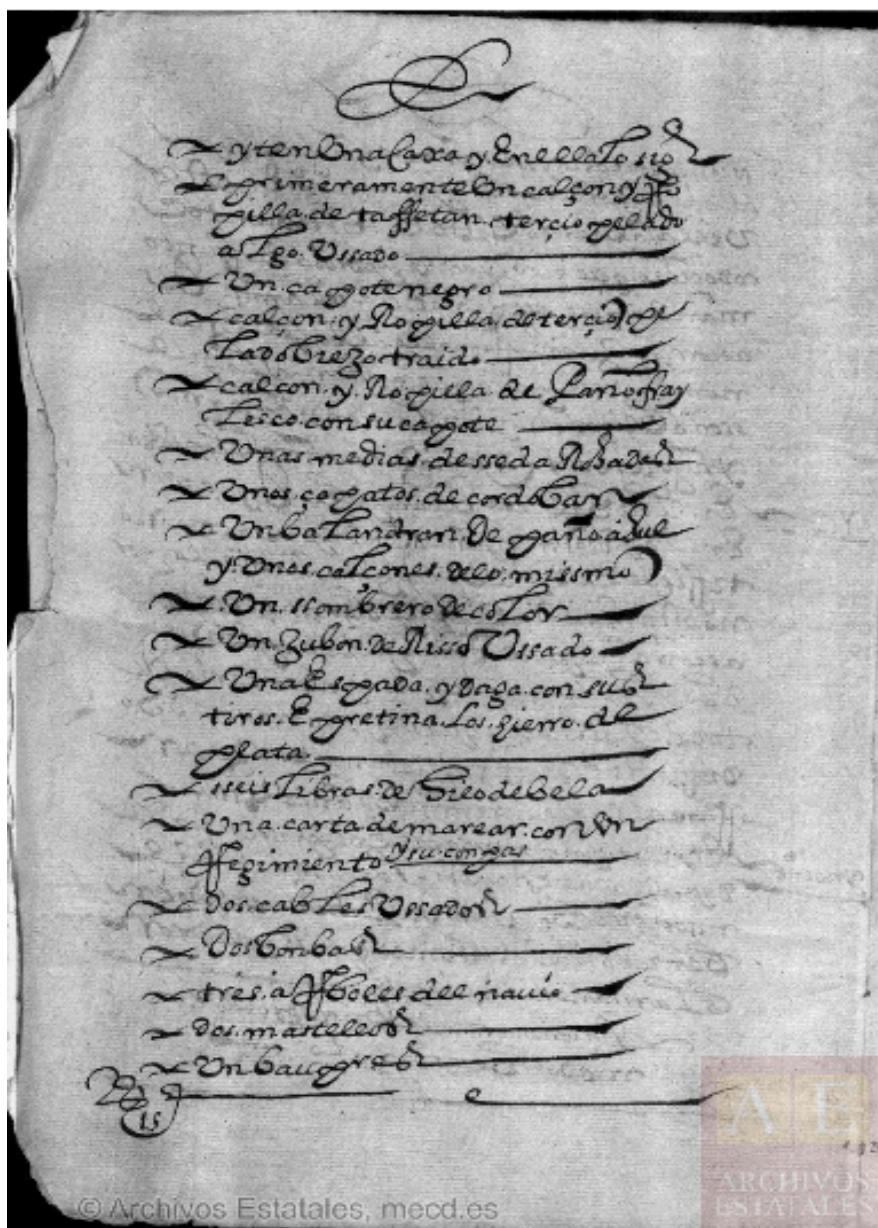 yten Una Caxa y En ella Lo sigᵉ
primeramente Un calçon y Ro
pilla de taffetan terçiopelado
algo Ussado
Un capote negro
calçon y Ropilla de terçiope
lado Viezo traido
calçon y Ropilla de Paño fray
lesco con su capote
Unas medias de sseda Rosadas
Unos çapatos de cordoban
Un balandran De paño açul
y Unos calçones de lo missmo
Un ssombrero de color
Un Zubon de Risso Ussado
Una Espada y daga con sus
tiros E pretina Los hierro de
plata
sseis Libras de hilo de bela
Una carta de marear con Un
Regimiento y su conpas
dos cables Ussados
Dos bonbas
tres aRboles del navio
dos masteleos
Un baupres
15
AE
ARCHIVOS
ESTATALES
© Archivos Estatales, mecd.es